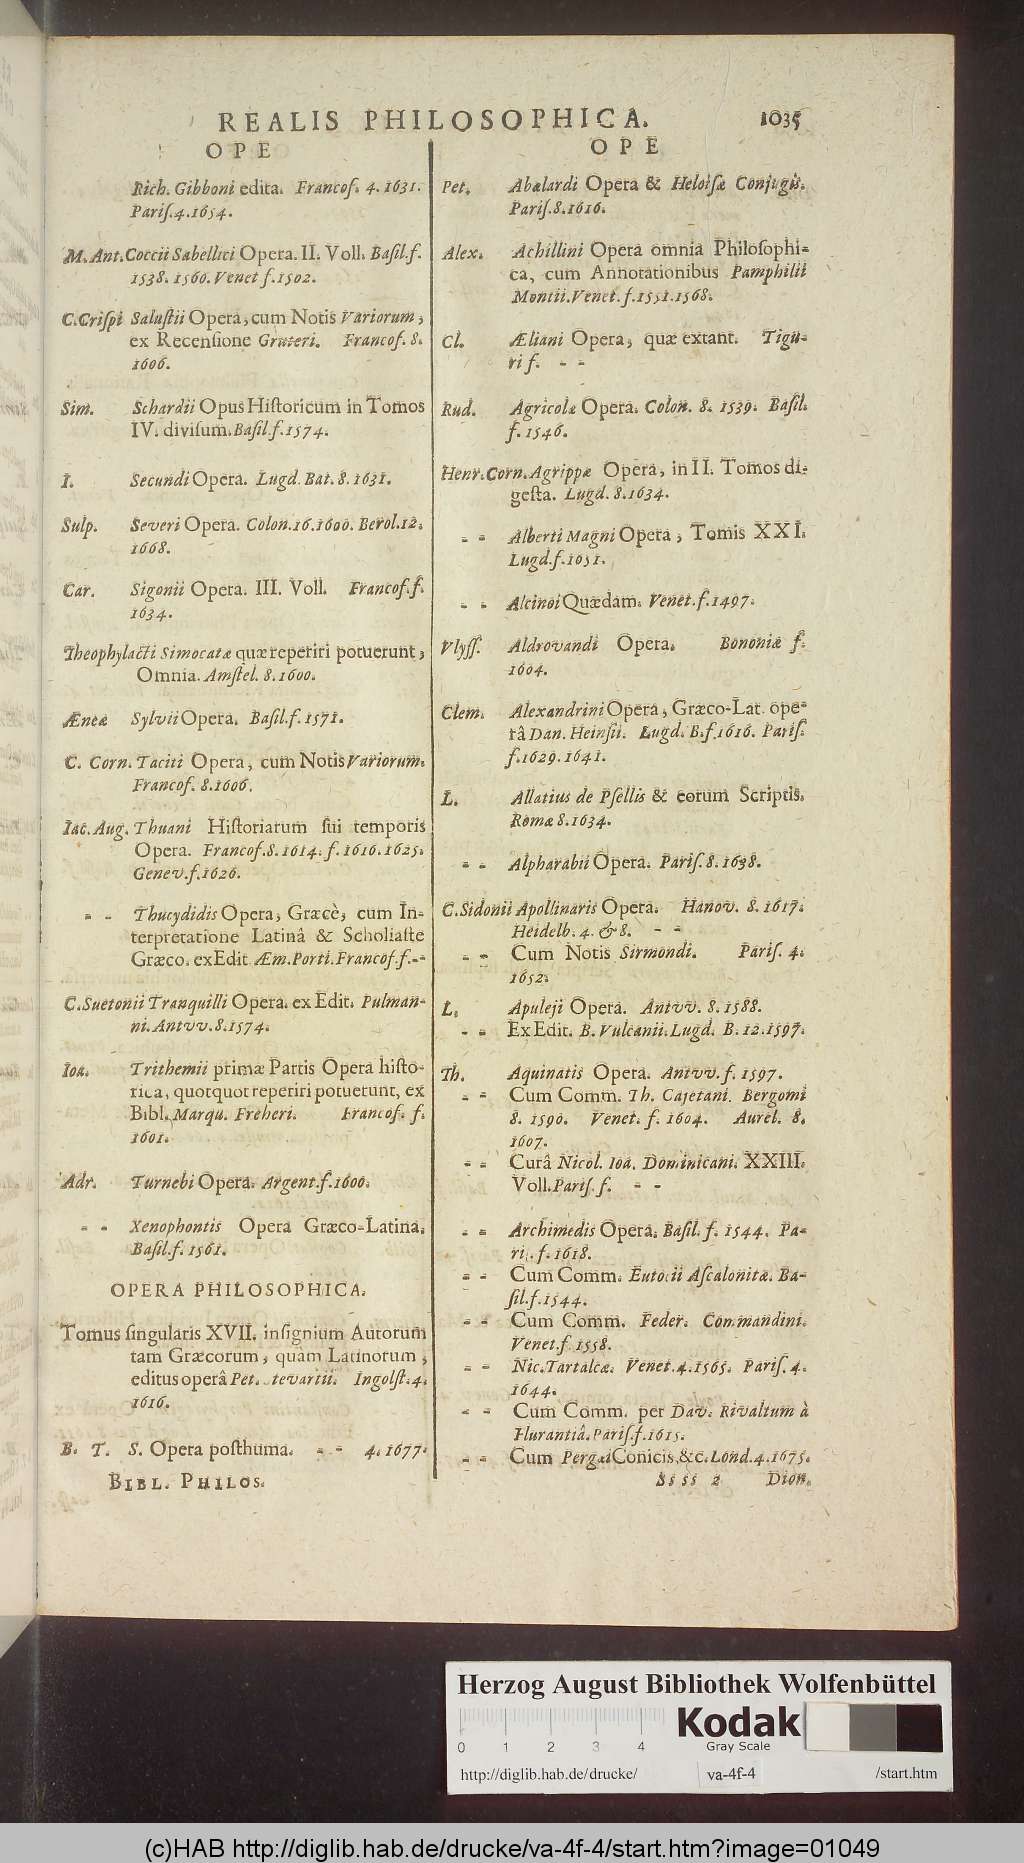 REALIS PHILOSOPHICA. 1035
OPE
Rich. Gibboni edita. Francof. 4. 1631.
Pariſ. 4. 1654.
M. Ant. Coccii Sabellici Opera. II. Voll. Baſil. f.
1538. 1560. Venet f. 1502.
C. Criſpi Saluſtii Opera, cum Notis Variorum,
ex Recenſione Gruteri. Francof. 8.
1606.
Sim. Schardii Opus Hiſtoricum in Tomos
IV. diviſum. Baſil. f. 1574.
I. Secundi Opera. Lugd. Bat. 8. 1631.
Sulp. Severi Opera. Colon. 16. 1600. Berol. 12.
1668.
Car. Sigonii Opera. III. Voll. Francof. f.
1634.
Theophylacti Simocatæ quæ reperiri potuerunt,
Omnia. Amſtel. 8. 1600.
Æneæ Sylvii Opera. Baſil. f. 1571.
C. Corn. Taciti Opera, cum Notis Variorum.
Francof. 8. 1606.
Iac. Aug. Thuani Hiſtoriarum ſui temporis
Opera. Francof. 8. 1614. f. 1616. 1625.
Genev. f. 1626.
- - Thucydidis Opera, Græcè, cum In-
terpretatione Latinâ & Scholiaſte
Græco. ex Edit Æm. Porti. Francof. f. - -
C. Suetonii Tranquilli Opera. ex Edit. Pulman-
ni. Antvv. 8. 1574.
Ioa. Trithemii primæ Partis Opera hiſto-
rica, quotquot reperiri potuerunt, ex
Bibl. Marqu. Freheri. Francof. f.
1601.
Adr. Turnebi Opera. Argent. f. 1600.
- - Xenophontis Opera Græco-Latina.
Baſil. f. 1561.
OPERA PHILOSOPHICA.
Tomus ſingularis XVII. inſignium Autorum
tam Græcorum, quam Latinorum,
editus operâ Pet. tevartii. Ingolſt. 4.
1616.
B. T. S. Opera poſthuma. - - 4. 1677.
BIBL. PHILOS.
OPE
Pet. Abælardi Opera & Heloiſæ Conjugis.
Pariſ. 8. 1616.
Alex. Achillini Opera omnia Philoſophi-
ca, cum Annotationibus Pamphilii
Montii. Venet. f. 1551. 1568.
Cl. Æliani Opera, quæ extant. Tigu-
ri f. - -
Rud. Agricolæ Opera. Colon. 8. 1539. Baſil.
f. 1546.
Henr. Corn. Agrippæ Opera, in II. Tomos di-
geſta. Lugd. 8. 1634.
- - Alberti Magni Opera, Tomis XXI.
Lugd. f. 1051.
- - Alcinoi Quædam. Venet. f. 1497.
Vlyſſ. Aldrovandi Opera. Bononiæ f.
1604.
Clem. Alexandrini Opera, Græco-Lat. ope-
râ Dan. Heinſii. Lugd. B. f. 1616. Pariſ.
f. 1629. 1641.
L. Allatius de Pſellis & eorum Scriptis.
Romæ 8. 1634.
- - Alpharabii Opera. Pariſ. 8. 1638.
C. Sidonii Apollinaris Opera. Hanov. 8. 1617.
Heidelb. 4. & 8. - -
- - Cum Notis Sirmondi. Pariſ. 4.
1652.
L. Apuleji Opera. Antvv. 8. 1588.
- - Ex Edit. B. Vulcanii. Lugd. B. 12. 1597.
Th. Aquinatis Opera. Antvv. f. 1597.
- - Cum Comm. Th. Cajetani. Bergomi
8. 1590. Venet. f. 1604. Aurel. 8.
1607.
- - Curâ Nicol. Ioa. Dominicani. XXIII.
Voll. Pariſ. f. - -
- - Archimedis Opera. Baſil. f. 1544. Pa-
ri. f. 1618.
- - Cum Comm. Eutocii Aſcalonitæ. Ba-
ſil. f. 1544.
- - Cum Comm. Feder. Commandini.
Venet. f. 1558.
- - Nic. Tartalcæ. Venet. 4. 1565. Pariſ. 4.
1644.
- - Cum Comm. per Dav. Rivaltum à
Flurantiâ. Pariſ. f. 1615.
- - Cum Pergæi Conicis, &c. Lond. 4. 1675.
Ss ss 2 Dion.
Herzog August Bibliothek Wolfenbüttel
Kodak
Gray Scale
0 1 2 3 4
http://diglib.hab.de/drucke/ va-4f-4 /start.htm
(c)HAB http://diglib.hab.de/drucke/va-4f-4/start.htm?image=01049